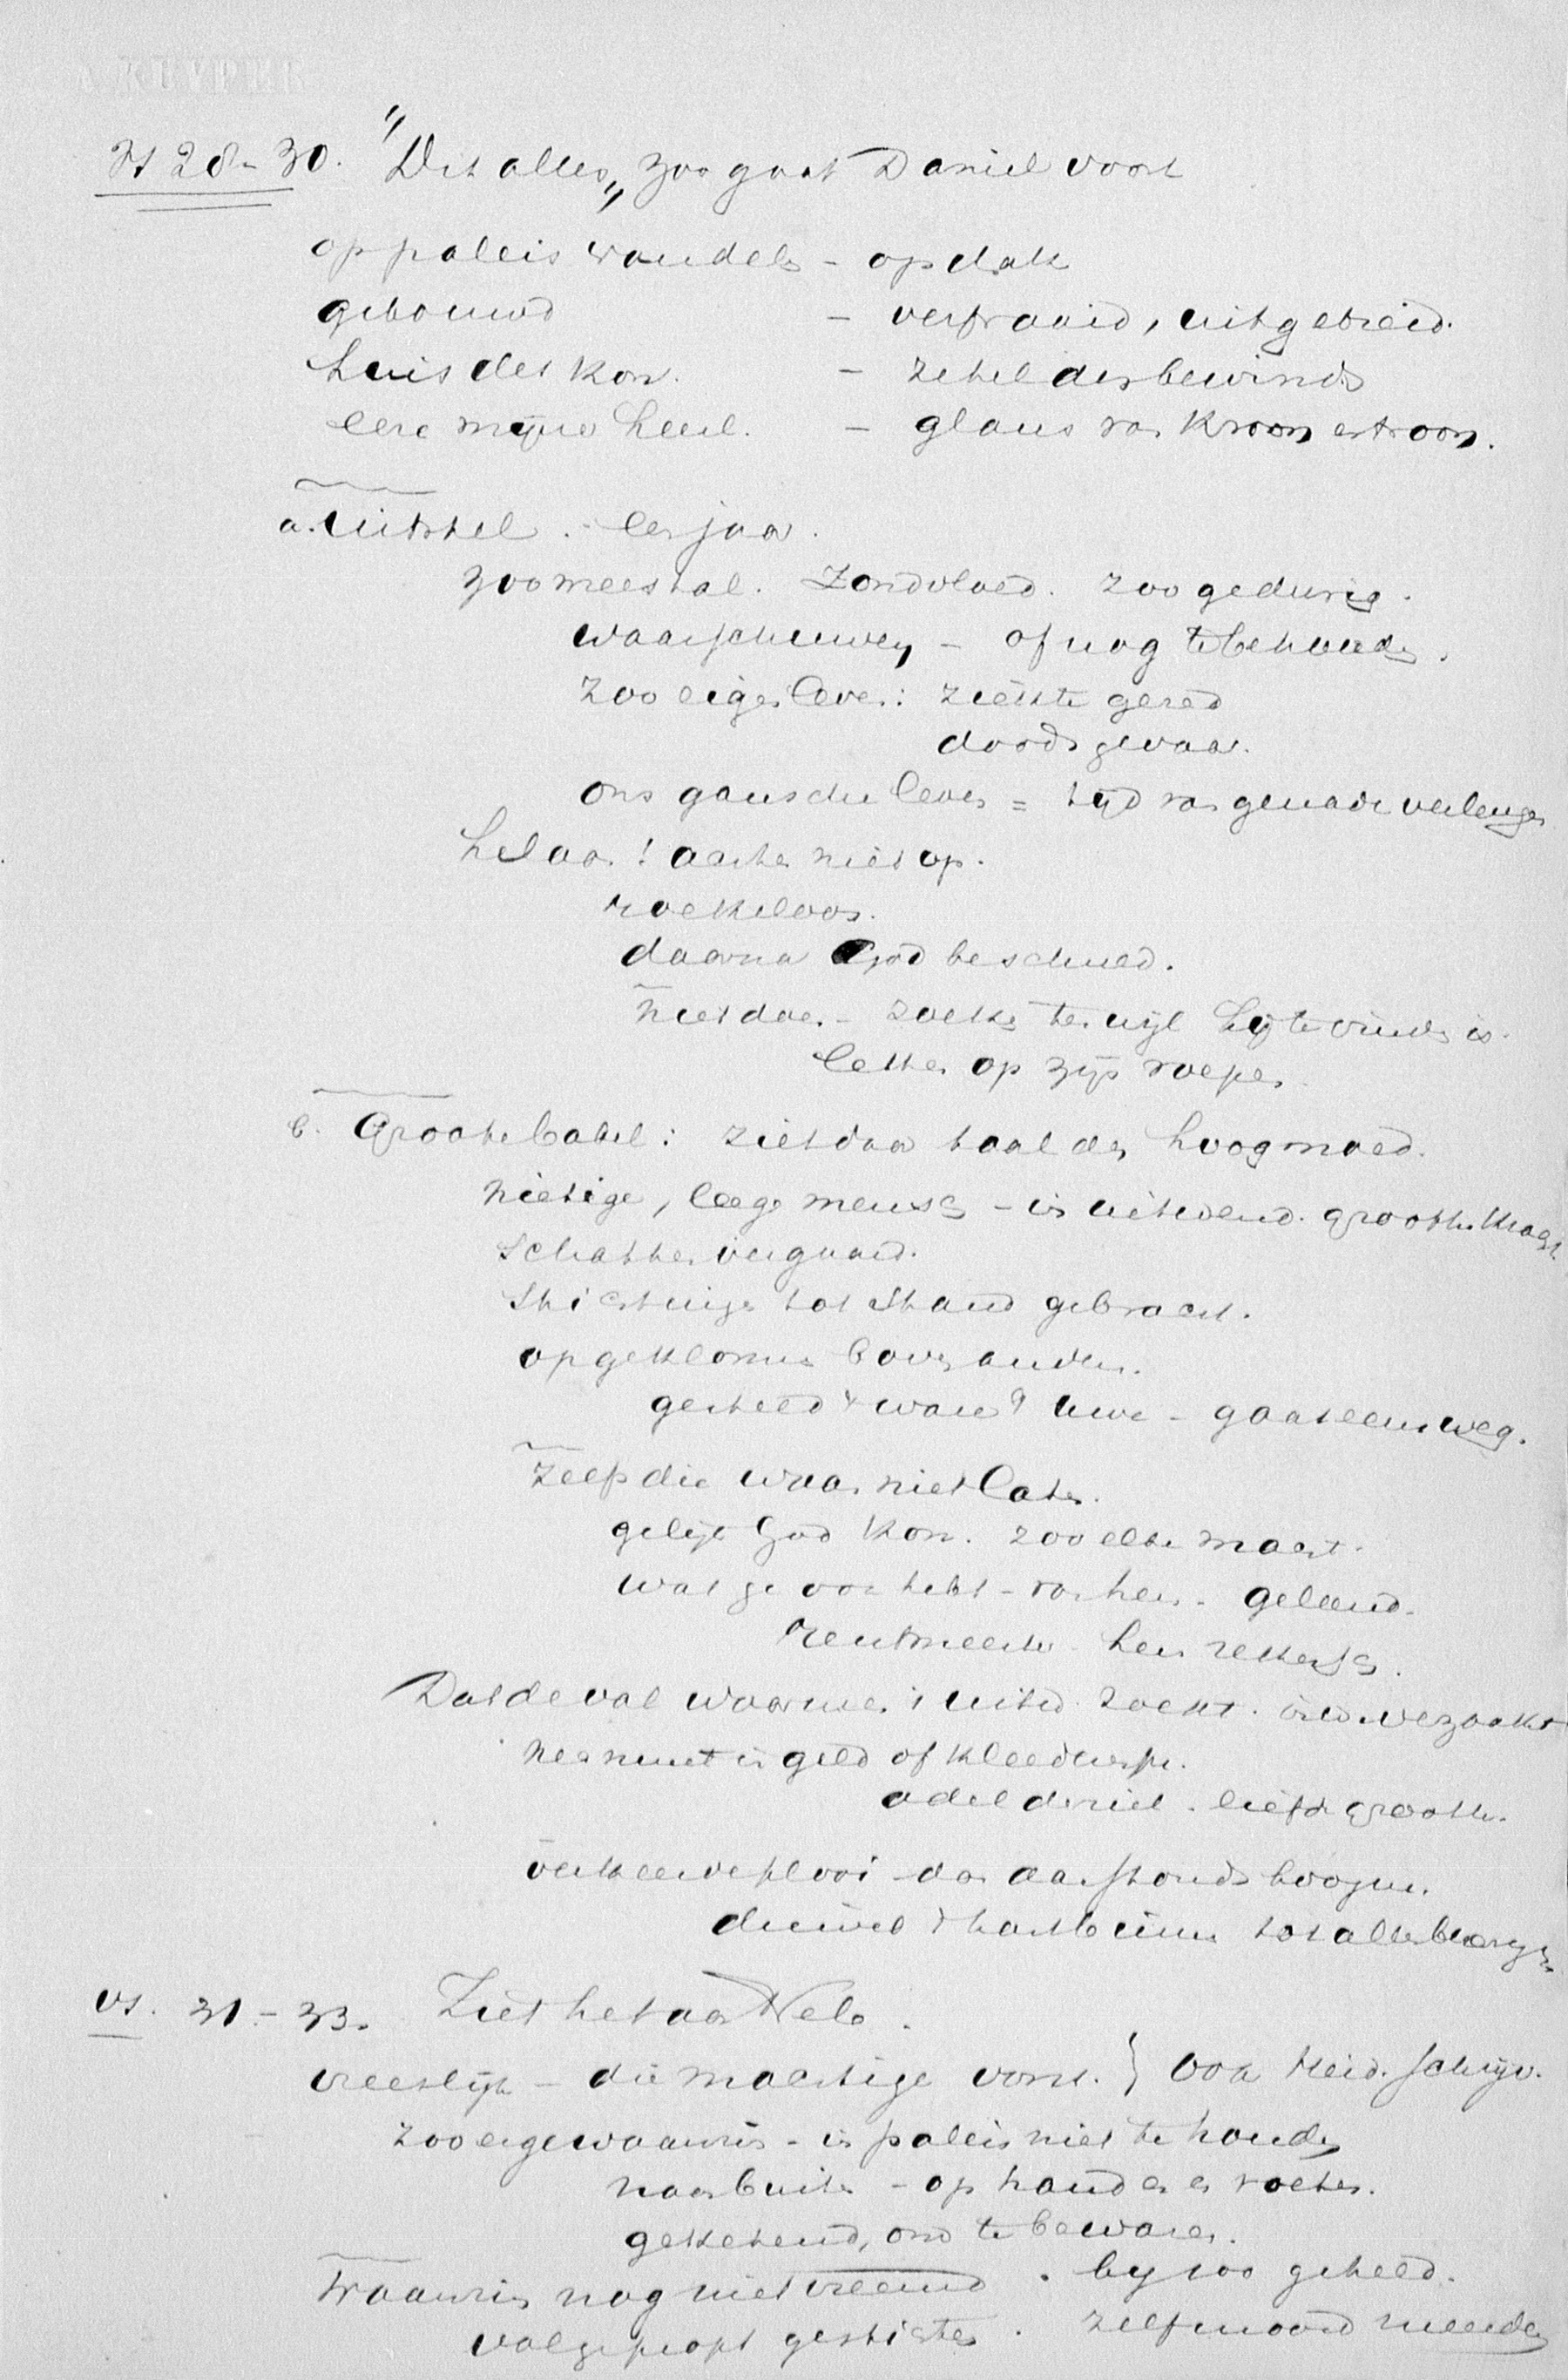 A. KUYPER
vs 28-30. "Dit alles„ zoo gaat Daniel voort
op paleis wandels - op dak
gebouwd - verfraaid, uitgebreid.
huis des kon. - zetel des bewinds
eere mijner heerl. - glans van kroon en troon.
a. uitstel. een jaar.
zoo meestal. Zondvloed. zoo gedurig.
waarschuwen - of nog te behouden.
zoo eigen leven: ziekte gered
doodsgevaar.
ons gansche leven = tijd van genade verlengen
helaas! achten niet op.
roekeloos.
daarna God beschuld.
niet doen - zoeken terwijl hij te vinden is.
letten op zijn roepen.
b. Groote babel: ziet daar taal des hoogmoed.
nietige, leege mensch - in uitwend. grootte kracht
schatten vergaard.
stichtingen tot stand gebracht.
opgeklommen boven anderen.
gaat heen weg.
zelf die waan niet laten.
gelijk God kon. zoo elke macht.
wat ge ook hebt - van hem. geleend.
rentmeester. hem rekensch.
Dat de val waarmee uitw. zoekt. inw. verzaakt
neemt in geld of kleed
adel der ziel. liefde grootte.
verkeerde plooi
duivel & hart tot alles
vs. 31-33. Ziet het aan Neb.
vreeslijk - die machtige vorst. } ook Heid. schrijv.
zoo erge waanzin - in paleis niet te houden
naar buiten - op handen en voeten.
geketend, om te bewaren.
Waanzin nog niet vreemd. bij 100 geheel.
volgepropt gestichten. zelfmoord